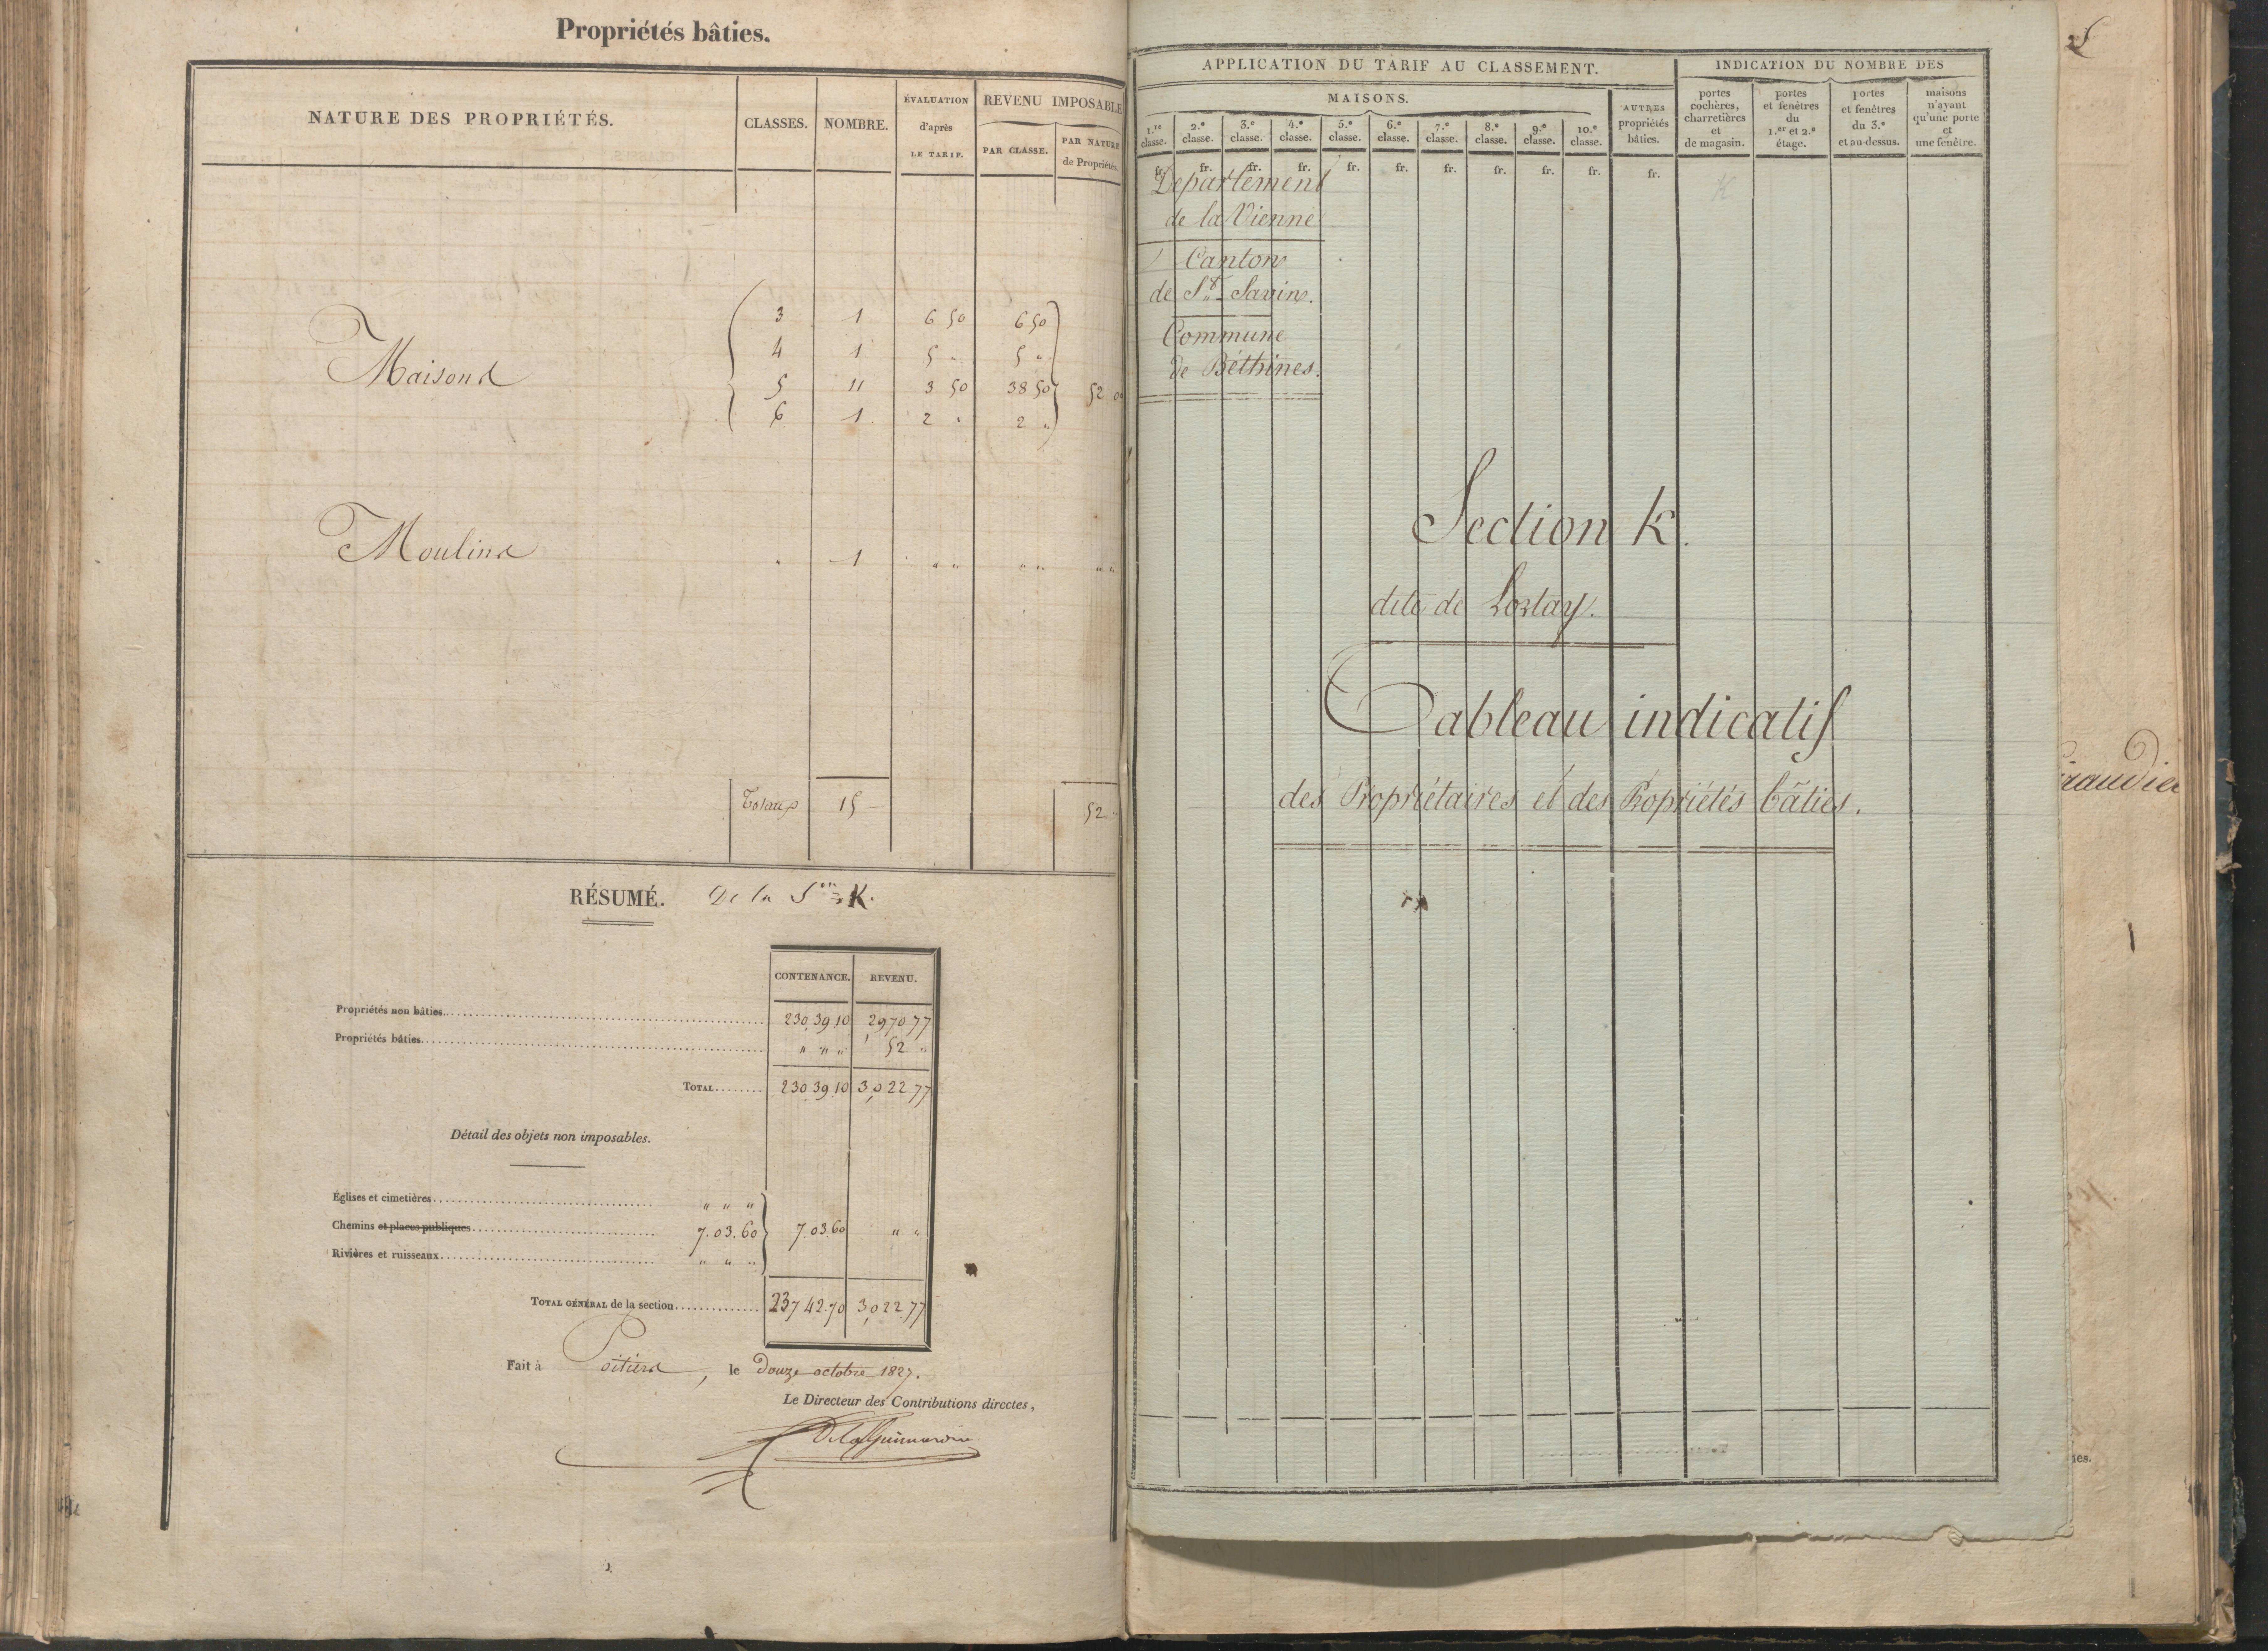 Propriétés bâties.
NATURE DES PROPRIÉTÉS. CLASSES. NOMBRE. ÉVALUATION d'après LE TARIF. REVENU IMPOSABLE PAR CLASSE. PAR NATURE de Propriétés.
3 1 6 50 6 50
4 1 5 " 5 "
Maisons
5 11 3 50 38 50 52 0
6 1 2 " 2 "
Moulins 1 " " " " " "
Totaux 15 52 "
RÉSUMÉ. De la S.on K.
CONTENANCE. REVENU.
Propriétés non bâties 230 39 10 2,970 77
Propriétés bâties " " " 52 "
TOTAL 230 39 10 3,022 77
Détail des objets non imposables.
Églises et cimetières " " "
Chemins et places publiques 7.03.60 7.03.60 " "
Rivières et ruisseaux " " "
TOTAL GÉNÉRAL de la section 237 42.70 3,022 77
Fait à Poitiers, le Douze octobre 1827.
Le Directeur des Contributions directes,
APPLICATION DU TARIF AU CLASSEMENT. INDICATION DU NOMBRE DES
MAISONS.
1.re classe. 2.e classe. 3.e classe. 4.e classe. 5.e classe. 6.e classe. 7.e classe. 8.e classe. 9.e classe. 10.e classe.
AUTRES propriétés bâties.
portes cochères, charretières et de magasin.
portes et fenêtres du 1.er et 2.e étage.
portes et fenêtres du 3.e et au-dessus.
maisons n'ayant qu'une porte et une fenêtre.
fr. fr. fr. fr. fr. fr. fr. fr. fr. fr. fr.
Département
de la Vienne
Canton
de S.t Savin.
Commune
de Béthines.
Section K.
dite de Lortay.
Tableau indicatif
des Propriétaires et des Propriétés bâties.